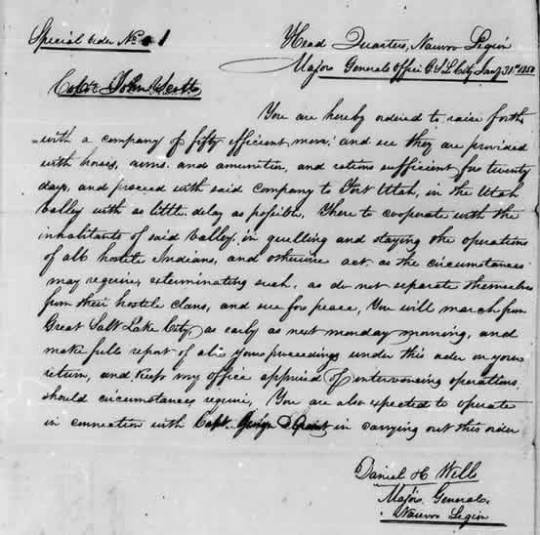 Special Order No. 1
Head Quarters, Nauvoo Legion
Major Generals Office G. S. L. City Jany 31st 1850
John Scott
You are hereby ordered to raise forth
with a company of fifty efficient men, and see they are provided
with horses, arms and amunition, and rations sufficient for twenty
days, and proceed with said Company to Fort Utah, in the Utah
Valley with as little delay as possible, There to cooperate with the
inhabitants of said Valley in quelling and staying the operations
of all hostile Indians, and otherwise act, as the circumstances
may require, exterminating such, as do not separate themselves
from their hostile clans, and sue for peace, You will march from
Great Salt Lake City, as early as next monday morning, and
make full report of all your proceedings under this order on your
return, and keep my office apprised of intervening operations
should circumstances require, You are also expected to operate
in connection with Capt. George D Grant in carrying out this order
Daniel H Wells
Major General
Nauvoo Legion